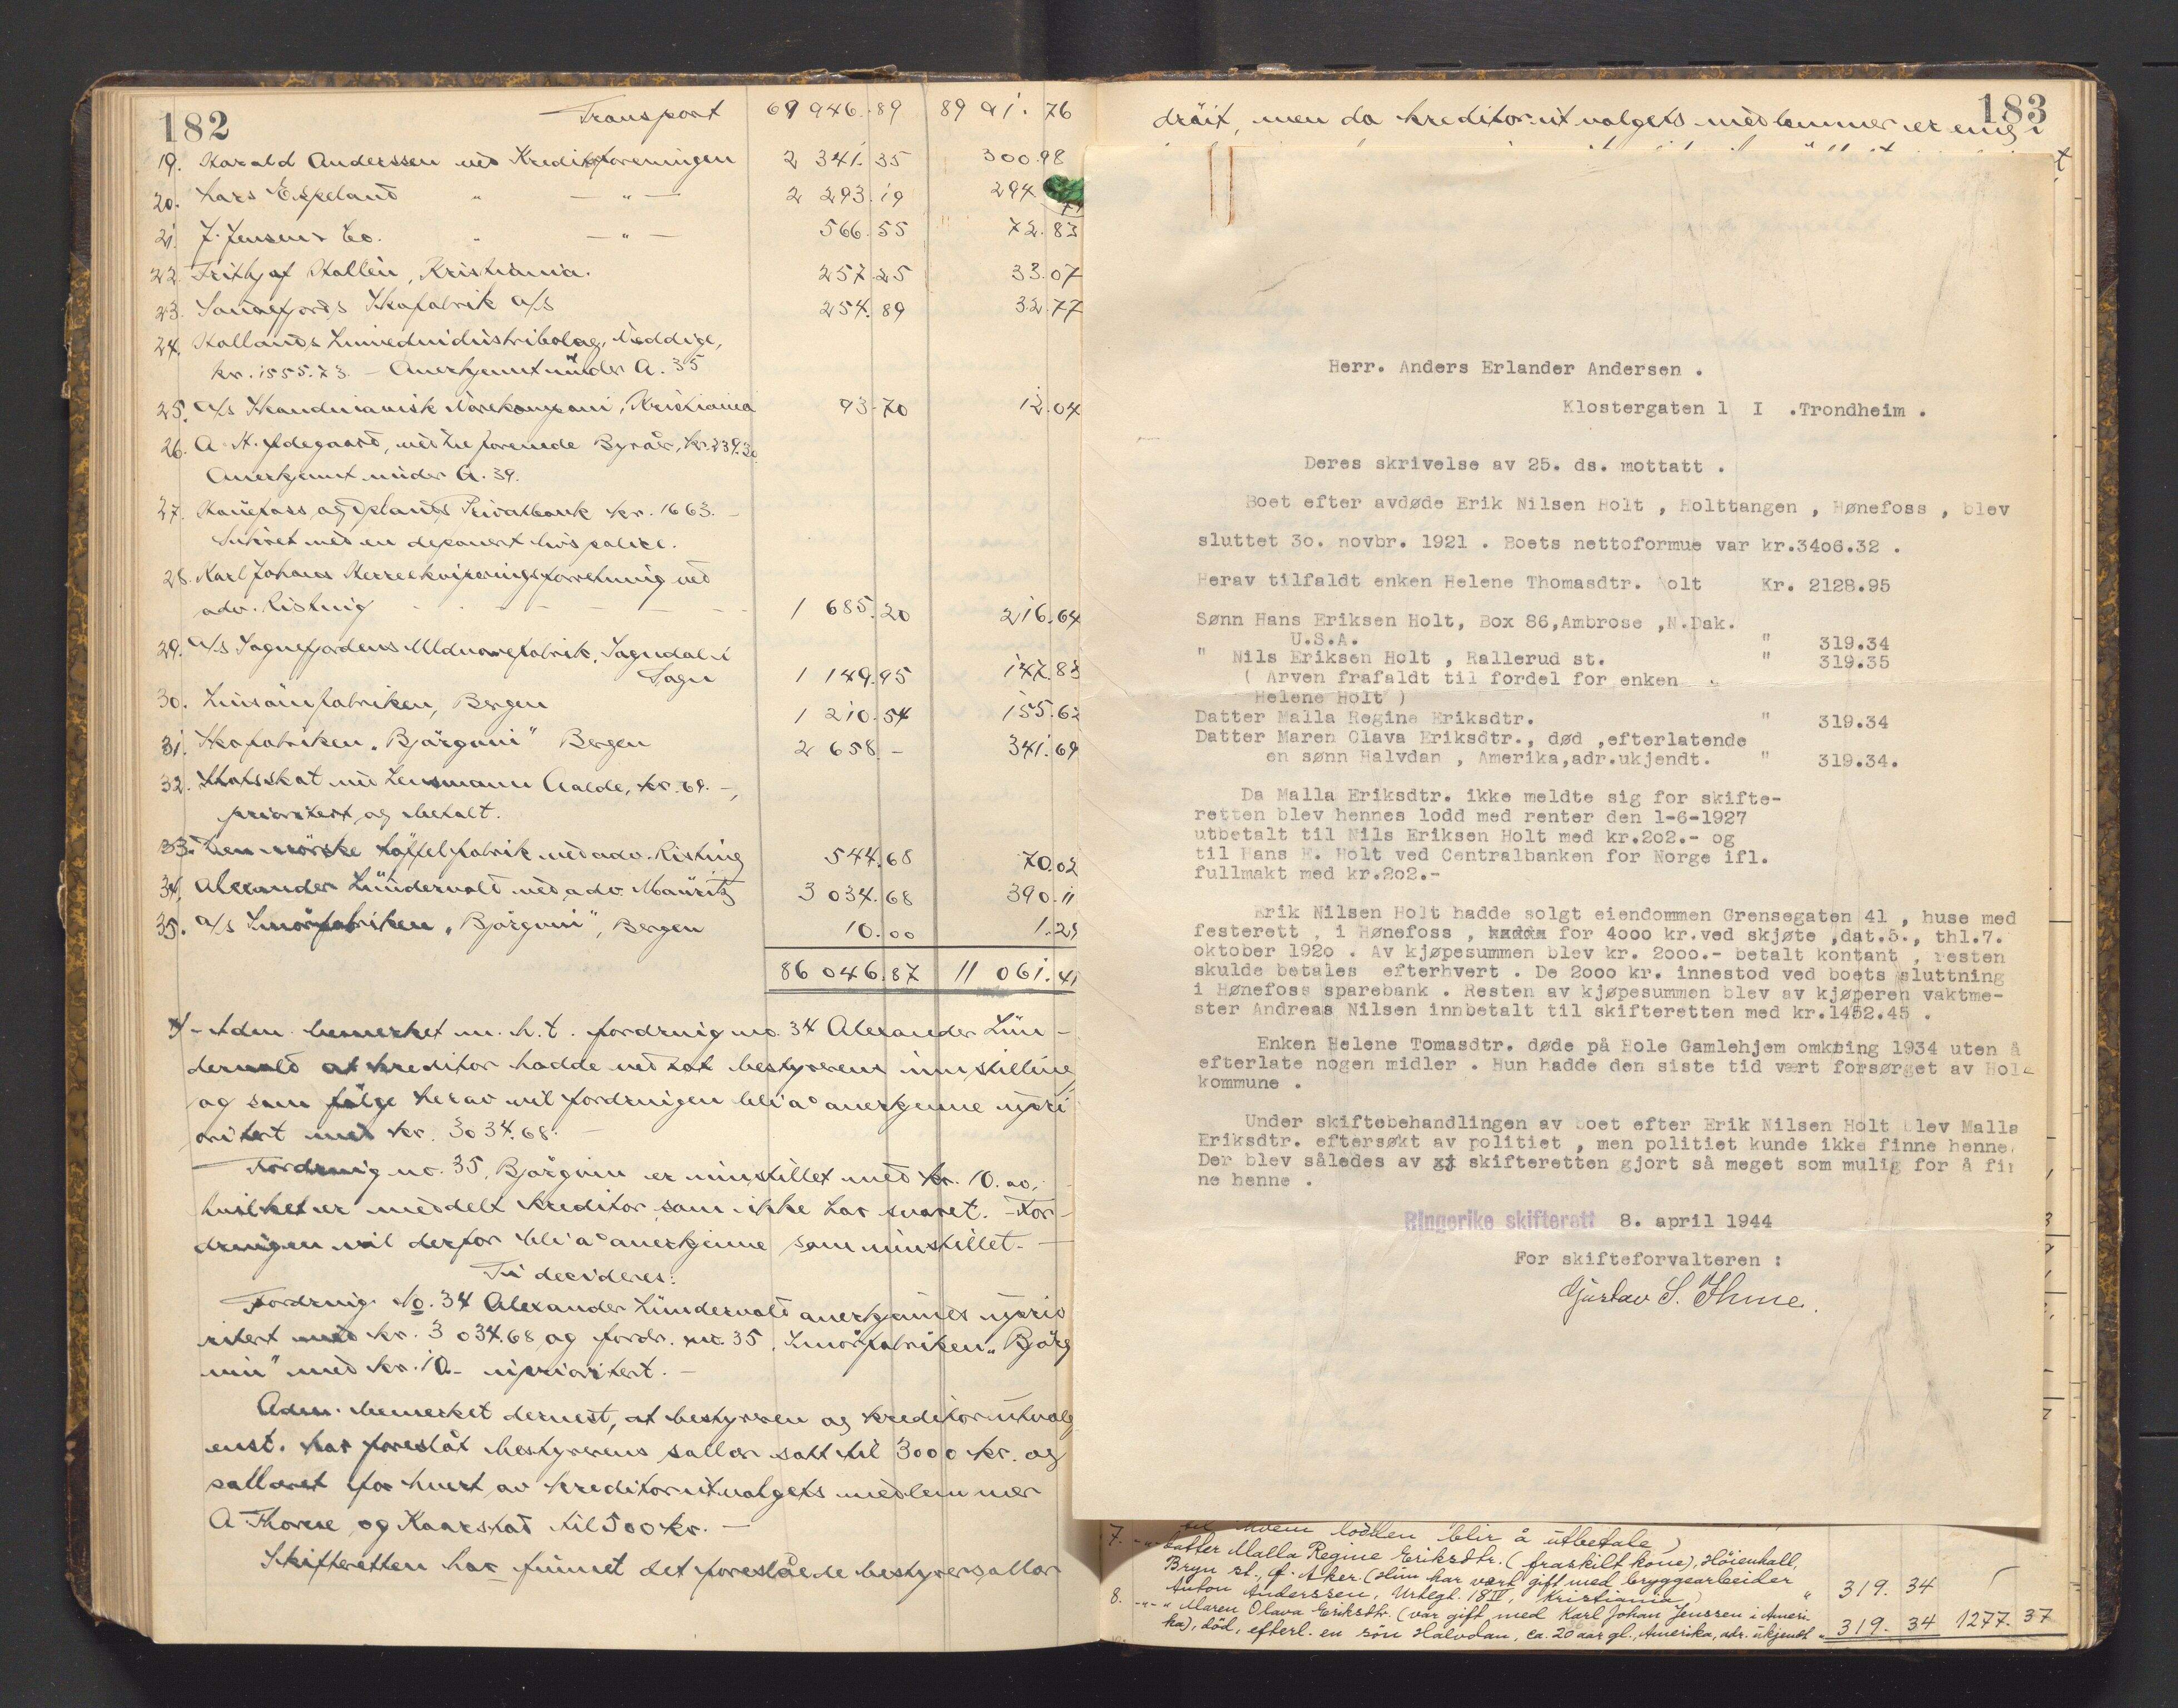 182
Transport 69 946.89 8991.76
19. Harald Anderssen ved Kreditforeningen 2 341.35 300.98
20. Lars Espeland " — " — 2 293.19 294
21. J. Jensen & Co. " — " — 566.55 72.83
22. Frithjof Hallén, Kristiania. 257.25 33.07
23. Sandefjords Skofabrik A/S 254.89 32.77
24. Hallands
kr. 1555.73. — Anerkjent under A. 35
25. A/S Skandinavisk Varekompani, Kristiania 93.70 12.04
26. A. H. Ødegaard, ved De forenede Byråer, kr. 239.30
Anerkjent under A. 39.
27. Hønefoss og Oplands Privatbank kr. 1663. —
Sikret med en deponert livspolice.
28. Karl Johans Herreekviperingsforretning ved
adv. Risting 1 685.20 216.64
29. A/S Sognefjordens Uldvarefabrik, Sogndal i
Sogn 1 149.95 147.83
30. Linsømfabriken, Bergen 1 210.54 155.62
31. Skofabriken "Bjørgvin" Bergen 2 658.– 341.69
32. Statsskat ved Lensmann Aalde, kr. 69. –,
prioritert og betalt.
33. Den norske tøffelfabrik ved adv. Risting 544.68 70.02
34. Alexander Lundervold ved adv. Mauritz 3 034.68 390.11
35. A/S Smørfabriken "Bjørgvin", Bergen 10.00 1.29
86 046.87 11 061.41
Adm. bemerket m. h. t. fordring no. 34 Alexander Lun-
dervold at kreditor hadde vedtat bestyrerens innstilling
og som følge herav vil fordringen bli å anerkjenne upri
oritert med kr. 3034.68. —
Fordring no. 35, Bjørgvin er innstillet med kr. 10.00,
hvilket er meddelt kreditor som ikke har svaret. For-
dringen vil derfor bli å anerkjenne som innstillet. —
Ti decideres:
Fordring No. 34 Alexander Lundervold anerkjennes uprio
ritert med kr. 3 034.68 og fordr. no. 35, Smørfabriken "Bjørg
vin" med kr. 10.– uprioritert. —
Adm. bemerket dernest, at bestyreren og kreditorutvalg
enst. har foreslåt bestyrerens sallær satt til 3000 kr. og
sallæret for hvert av kreditorutvalgets medlemmer
A. Thorese og Kaarstad til 500 kr. —
Skifteretten har funnet det foreslåede bestyrersallær
183
drøit, men da kreditorutvalgets medlemmer er enig i
Herr. Anders Erlander Andersen .
Klostergaten 1 I .Trondheim .
Deres skrivelse av 25. ds. mottatt .
Boet efter avdøde Erik Nilsen Holt , Holttangen , Hønefoss , blev
sluttet 3o. novbr. 1921 . Boets nettoformue var kr.34o6.32 .
Herav tilfaldt enken Helene Thomasdtr. Holt Kr. 2128.95
Sønn Hans Eriksen Holt, Box 86,Ambrose ,N.Dak.
U.S.A. " 319.34
" Nils Eriksen Holt , Rallerud st. " 319.35
( Arven frafaldt til fordel for enken .
Helene Holt )
Datter Malla Regine Eriksdtr. " 319.34
Datter Maren Olava Eriksdtr., død ,efterlatende
en sønn Halvdan , Amerika,adr.ukjendt. " 319.34.
Da Malla Eriksdtr. ikke meldte sig for skifte-
retten blev hennes lodd med renter den 1-6-1927
utbetalt til Nils Eriksen Holt med kr.2o2.- og
til Hans E. Holt ved Centralbanken for Norge ifl.
fullmakt med kr.2o2.-
Erik Nilsen Holt hadde solgt eiendommen Grensegaten 41 , huse med
festerett , i Hønefoss , hadde for 4ooo kr.ved skjøte ,dat.5., thl.7.
oktober 192o . Av kjøpesummen blev kr. 2ooo.- betalt kontant , resten
skulde betales efterhvert . De 2ooo kr. innestod ved boets sluttning
i Hønefoss sparebank . Resten av kjøpesummen blev av kjøperen vaktme-
ster Andreas Nilsen innbetalt til skifteretten med kr.1452.45 .
Enken Helene Tomasdtr. døde på Hole Gamlehjem omkring 1934 uten å
efterlate nogen midler . Hun hadde den siste tid vært forsørget av Hole
kommune .
Under skiftebehandlingen av boet efter Erik Nilsen Holt blev Malla
Eriksdtr. eftersøkt av politiet , men politiet kunde ikke finne henne.
Der blev således av xj skifteretten gjort så meget som mulig for å fin
ne henne .
Ringerike skifterett 8. april 1944
For skifteforvalteren :
Gustav S. Thune.
til hvem lodden blir å utbetale)
7. -"- Datter Malla Regine Eriksdtr. (fraskilt kone), Höienhall,
Bryn st., Ø. Aker. (Hun har vært gift med bryggearbeider
Anton Anderssen, Urtegt. 18 IV, Kristiania) " 319. 34
8. -"- " Maren Olava Eriksdtr. (var gift med Karl Johan Jenssen i Ameri-
ka), död, efterl. en sön Halvdan, ca. 20 aar gl., Amerika, adr. ukjendt " 319. 34 1277. 37